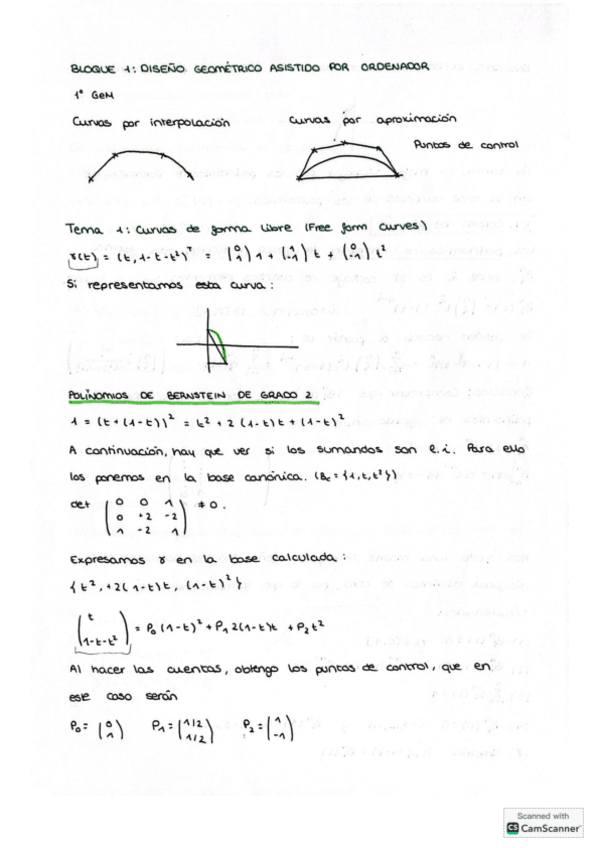 BLOQUE 1: DISEÑO GEOMÉTRICO ASISTIDO POR ORDENADOR
1º GeM
Curvas por interpolación
Curvas por aproximación
Puntos de control
Tema 1: Curvas de forma libre (Free form curves)
γ(t) = (t, 1-t-t²)ᵀ = (0 1) 1 + (1 -1) t + (0 -1) t²
Si representamos esta curva:
POLINOMIOS DE BERNSTEIN DE GRADO 2
1 = (t + (1-t))² = t² + 2 (1-t)t + (1-t)²
A continuación, hay que ver si los sumandos son l.i. Para ello
los ponemos en la base canónica. (Bc = {1, t, t²})
det (0 0 1
0 +2 -2
1 -2 1) ≠ 0.
Expresamos γ en la base calculada:
{t², +2(1-t)t, (1-t)²}
(t
1-t-t²) = P₀ (1-t)² + P₁ 2(1-t)t + P₂ t²
Al hacer las cuentas, obtengo los puntos de control, que en
este caso serán
P₀ = (0 1) P₁ = (1/2 1/2) P₂ = (1 -1)
Scanned with
CS CamScanner